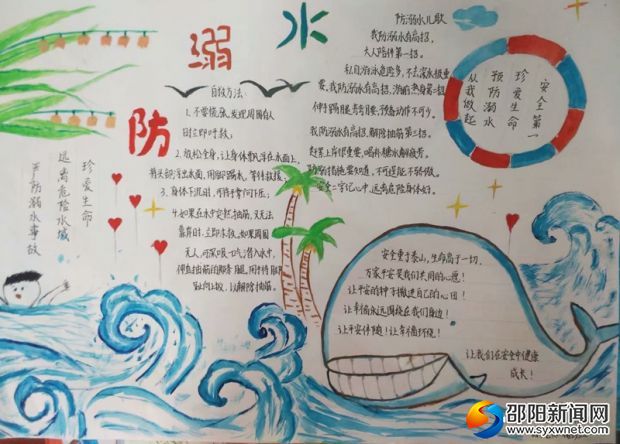 防溺水
防溺水儿歌
我防溺水有高招,
大人陪伴第一招。
私自游泳危险多,不去深水很重
要,我防溺水有高招,游前热身第一招
伸伸踢腿弯弯腰,预备动作不可少。
我防溺水有高招,解除抽筋第二招。
赶紧上岸很重要,喝补糖水解疲劳。
防溺措施要知道,不可逞能不骄傲。
安全二字记心中,远离危险身体好。
安全第一
珍爱生命
预防溺水
从我做起
自救方法:
1.不要慌张,发现周围有人
时立即呼救;
2.放松全身,让身体漂浮在水面上,
将头部浮出水面,用脚踢水,等待救援;
3.身体下沉时,可将手掌向下压;
4.如果在水中突然抽筋,又无法
靠岸时,立即求救,如果周围
无人,可深吸一口气潜入水中,
伸直抽筋的那条腿,用手将脚
趾向上扳,以解除抽筋。
珍爱生命
远离危险水域
严防溺水事故
安全重于泰山,生命高于一切,
万家平安是我们共同的心愿!
让平安的种子撒进自己的心田!
让幸福永远围绕在我们身边!
让平安伴随!让幸福环绕!
让我们在安全中健康
成长!
邵阳新闻网
www.syxwnet.com